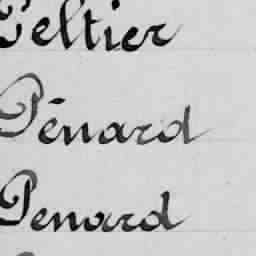 Peltier
Pénard
Penard